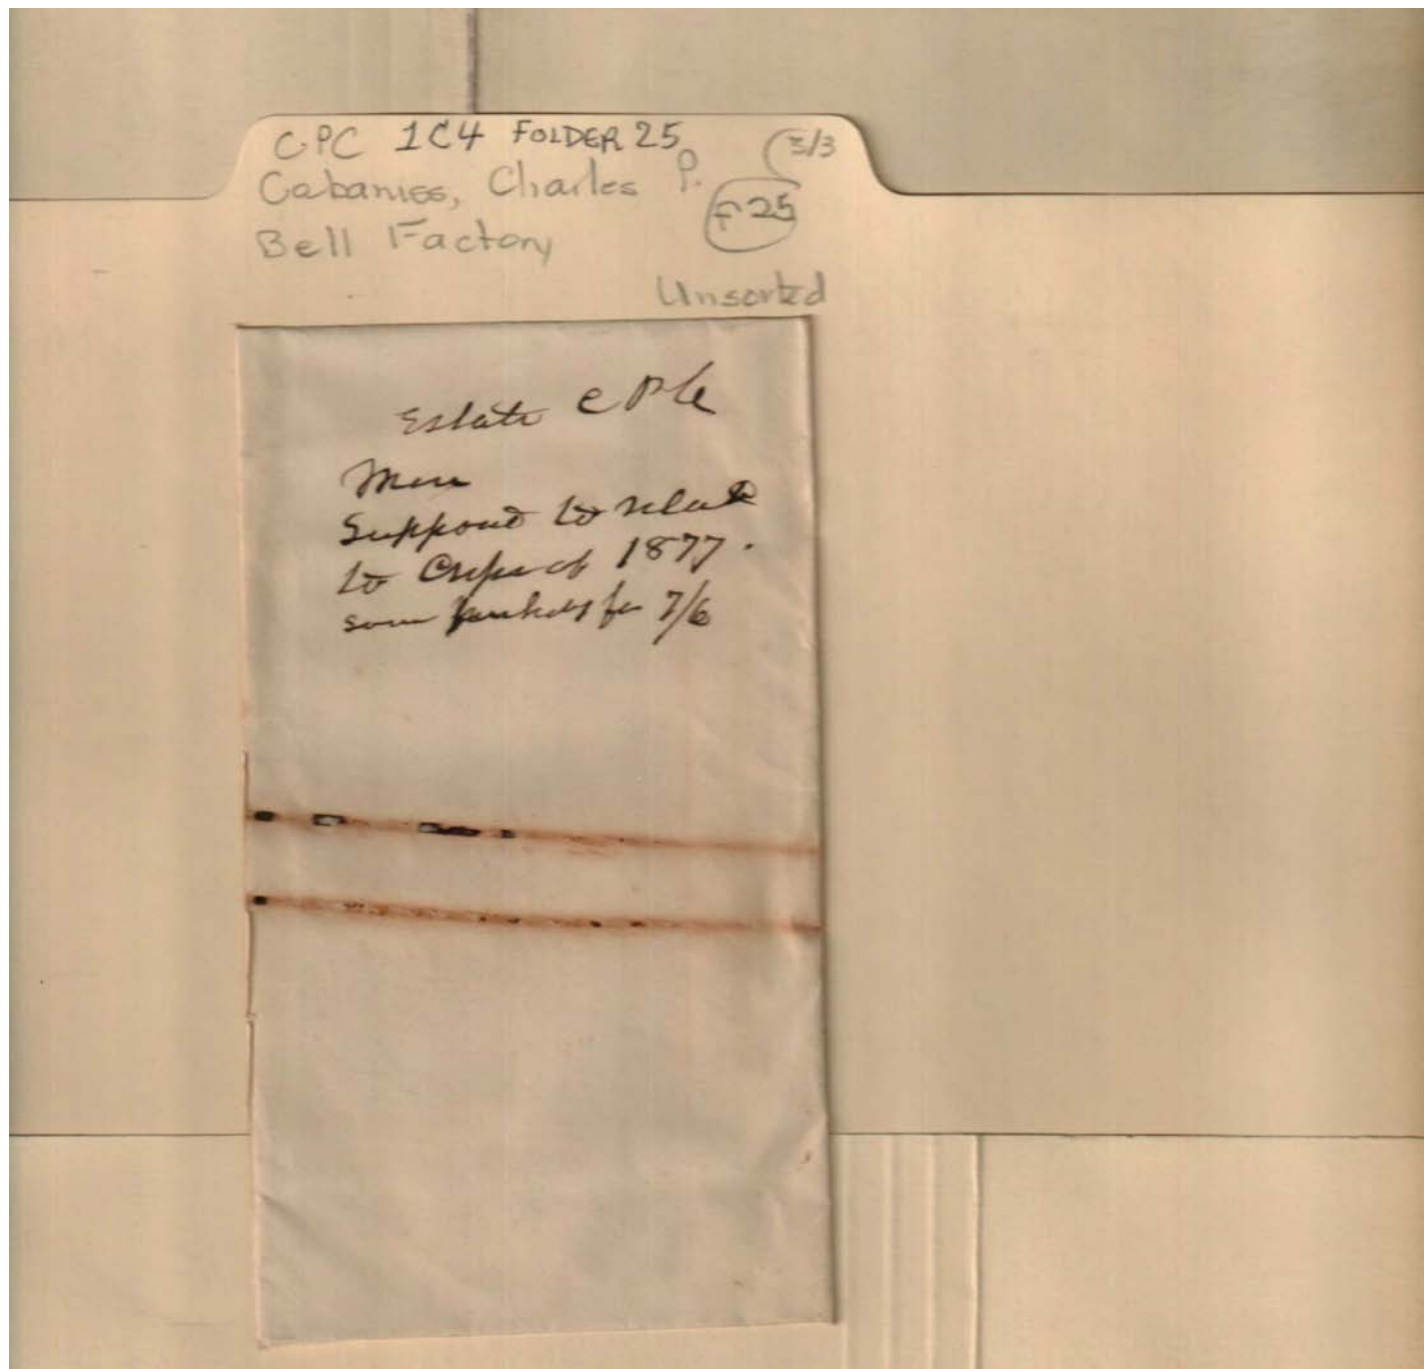 C.PC 1C4 FOLDER 25 3/3
Cabaniss, Charles P.
F25
Bell Factory
Unsorted
Estate C P C
Supposed to relate
to Crops of 1877.
some for 7/6